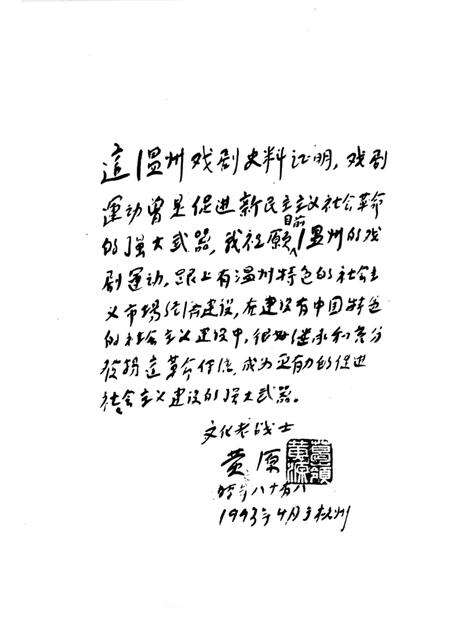 這温州戏剧史料证明，戏剧
運动曾是促進新民主主义社会革命
的强大武器，我祝願目前温州的戏
剧運动，跟上有温州特色的社会主
义市場经济建设，在建设有中国特色
的社会主义建设中，很好继承和充分
發揚这革命传统，成为有力的促進
社会主义建设的强大武器。
文化老战士
黄源
時年八十有八
1993年4月于杭州